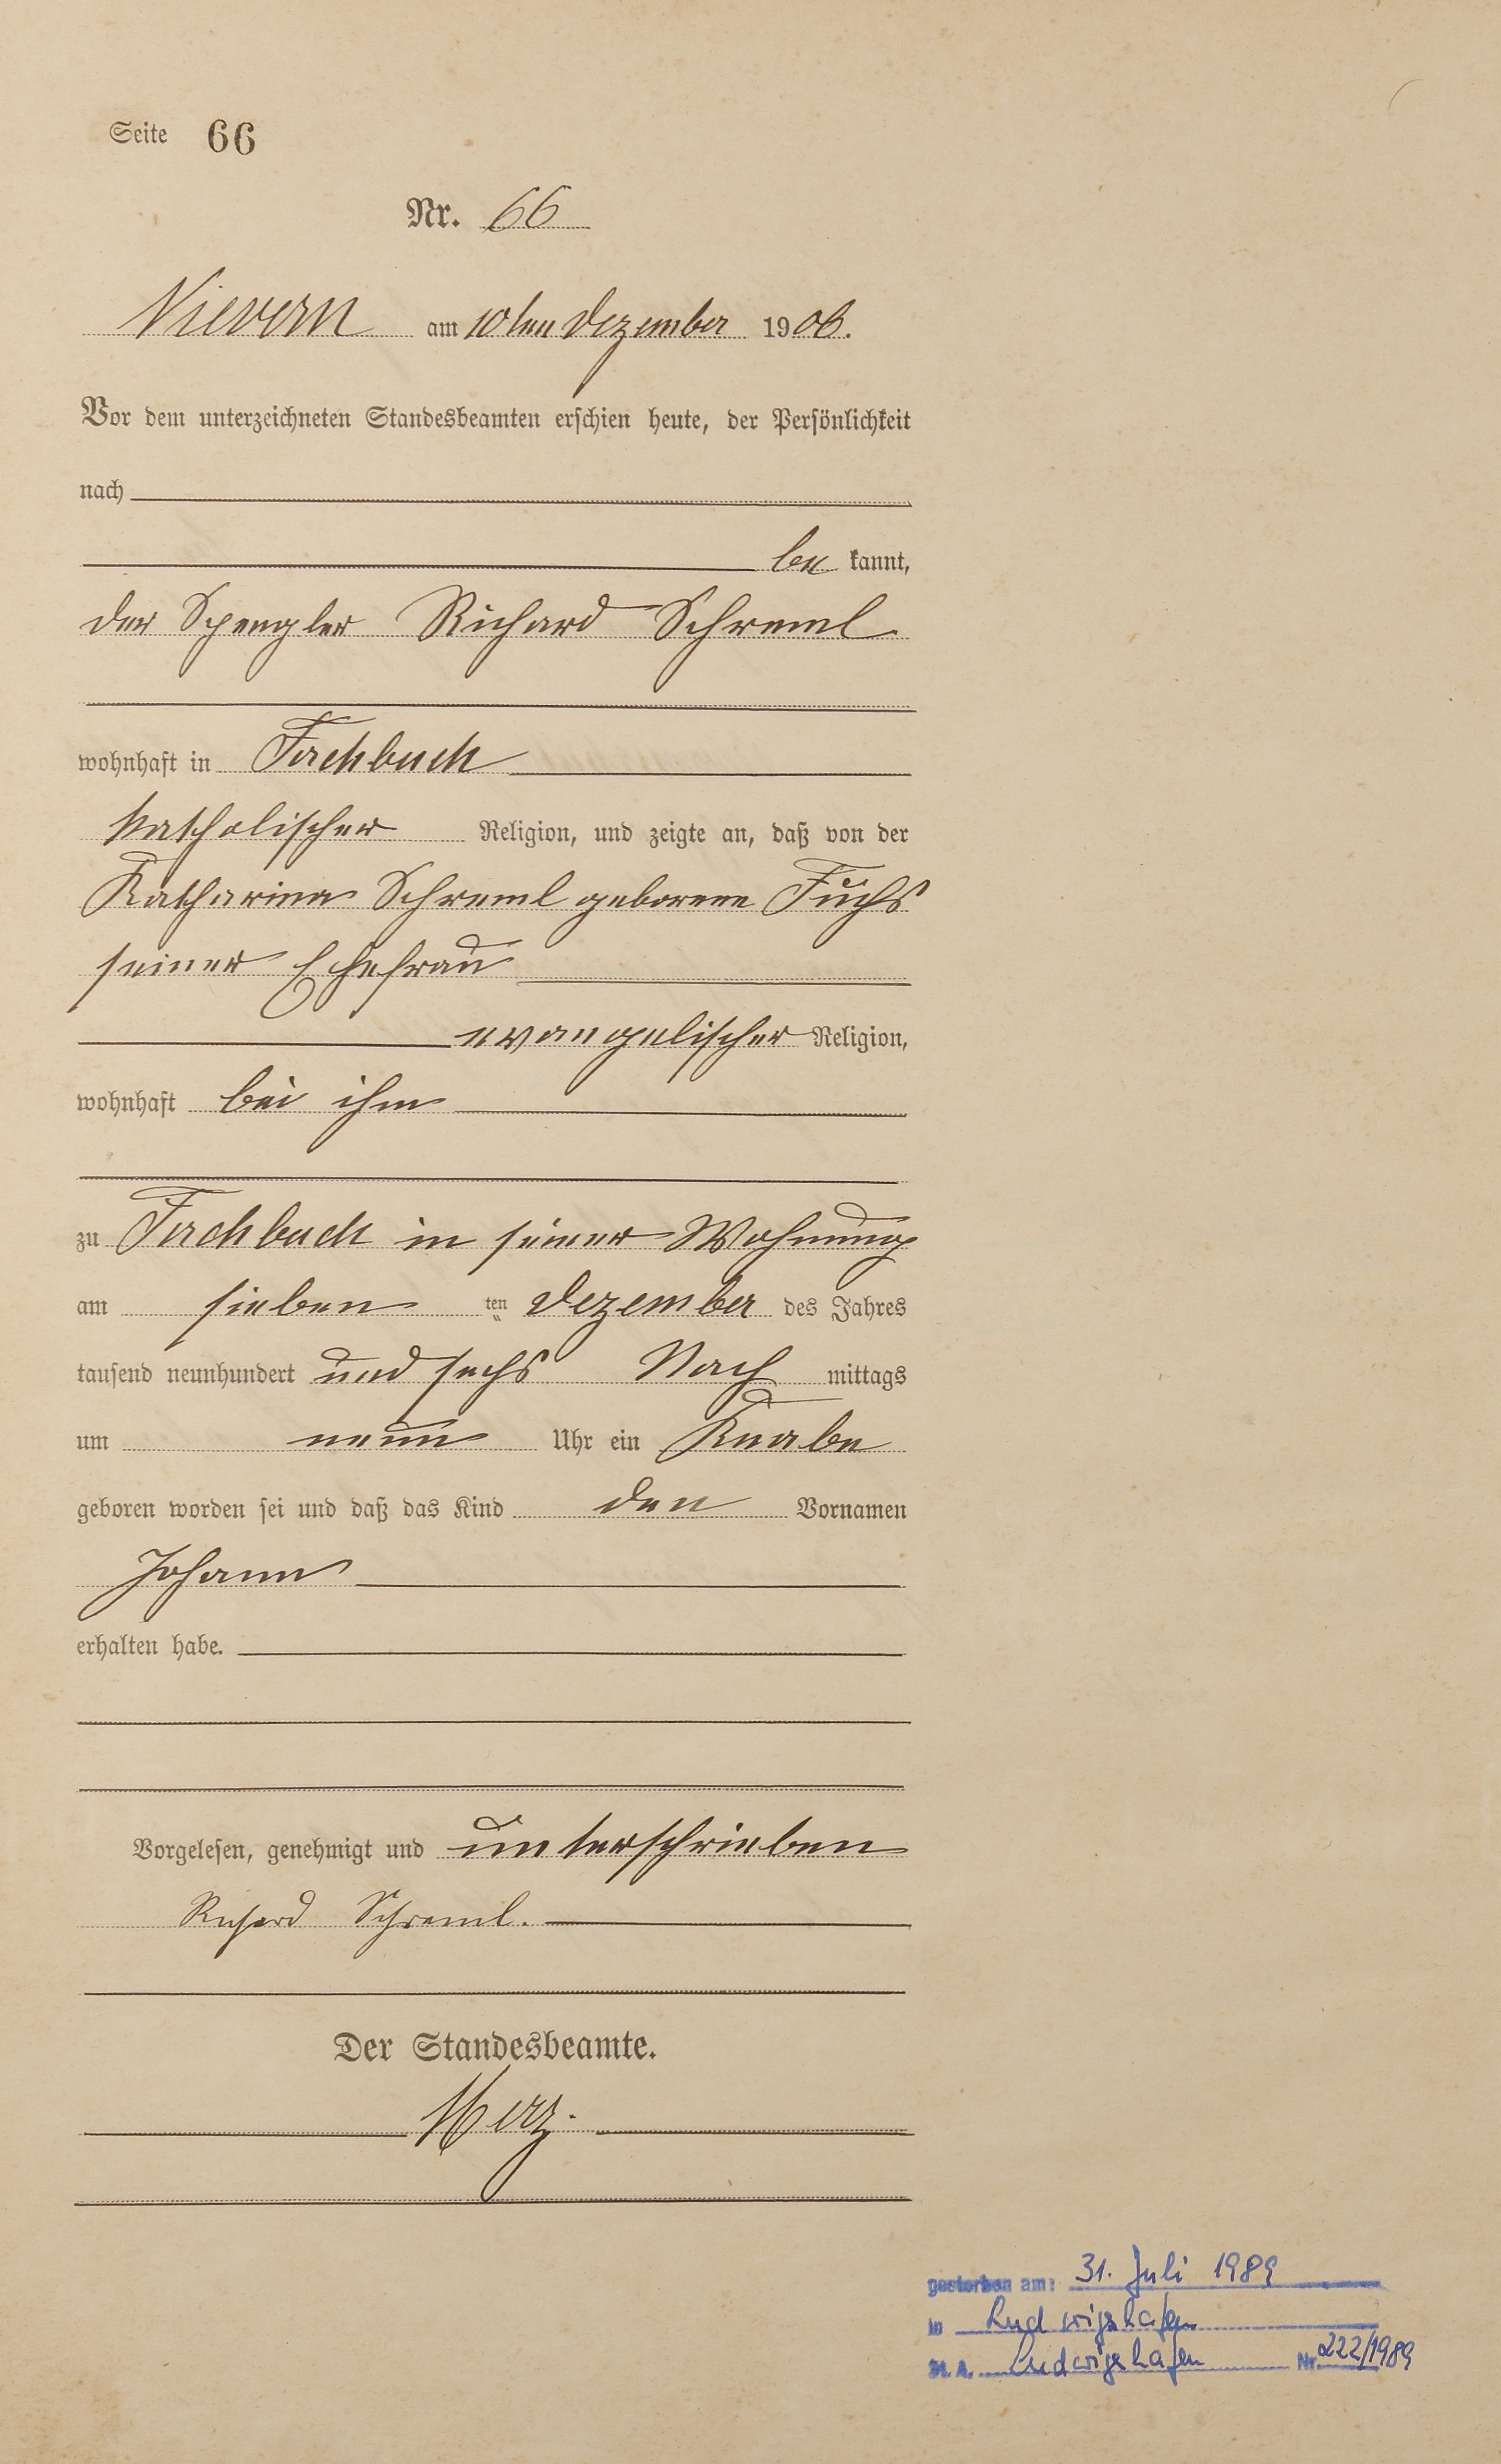 Seite 66
Nr. 66
Nievern am 10ten Dezember 1906.
Vor dem unterzeichneten Standesbeamten erschien heute, der Persönlichkeit
nach
be kannt,
der Spengler Richard Schreml
wohnhaft in Fachbach
katholischer Religion, und zeigte an, daß von der
Katharina Schreml geborene Fuchs
seiner Ehefrau
evangelischer Religion,
wohnhaft bei ihm
zu Fachbach in seiner Wohnung
am sieben ten Dezember des Jahres
tausend neunhundert und sechs Nach mittags
um neun Uhr ein Knabe
geboren worden sei und daß das Kind den Vornamen
Johann
erhalten habe.
Vorgelesen, genehmigt und unterschrieben
Richard Schreml.
Der Standesbeamte.
Merz.
gestorben am: 31. Juli 1989
in Ludwigshafen
St. A. Ludwigshafen Nr. 222/1989